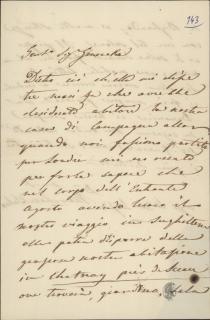 143
Gent.ma Sig.a Generala
Dietro ciò ch'ella mi disse
tre mesi fa che avrebbe
desiderato abitare la nostra
casa di campagna allor
quando noi fossimo partiti
per Londra mi fo
per farle sapere che
nel corso dell'Entrante
Agosto avendo luogo il
nostro viaggio in Inghilterra
ella potrà disporre della
graziosa nostra abitazione
in Chatnay près de Sceaux
ove troverà, giardino, bella